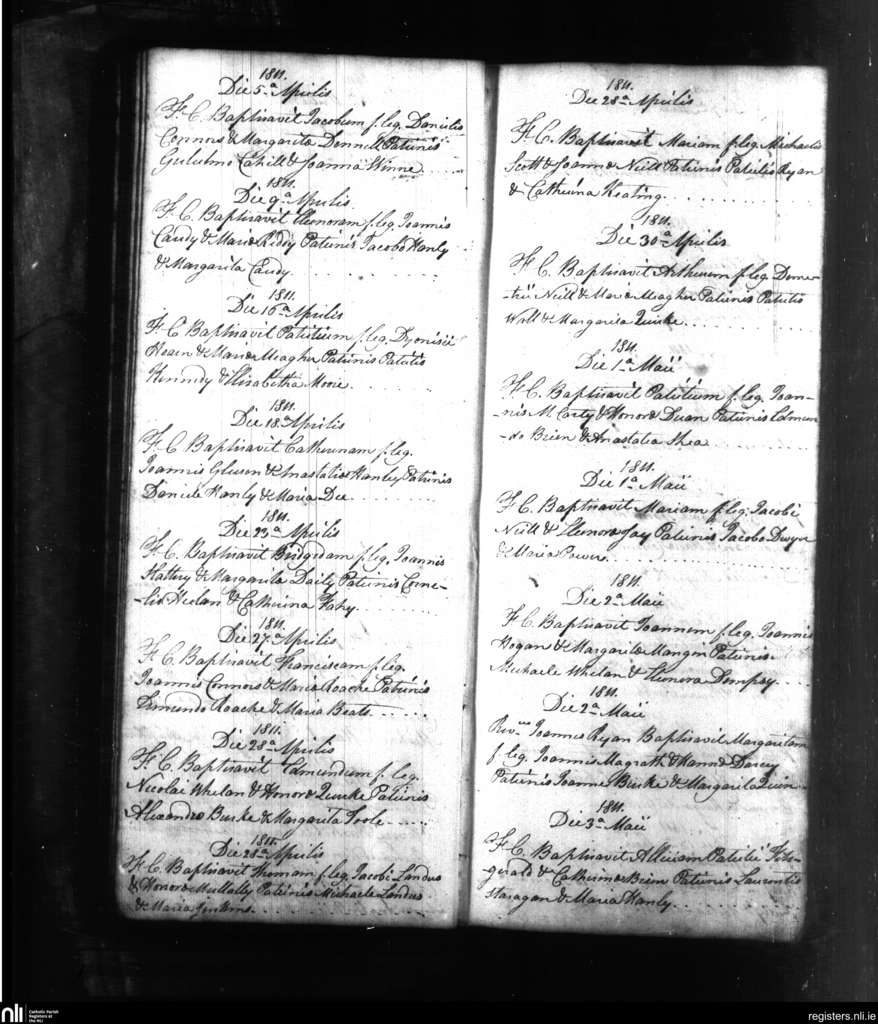 1811.
Die 5.a Aprilis
F. C. Baptisavit Jacobum f. leg. Danielis
Connors & Margarita Donnell Patrinis
Gulielmo Cahill & Joanna Winne
1811.
Die 9.a Aprilis
F. C. Baptisavit Elenoram f. leg. Joannis
Candy & Maria Reddy Patrinis Jacobo Hanly
& Margarita Candy
1811.
Die 16.a Aprilis
F. C. Baptisavit Patritium f. leg. Dyonisii
& Maria Meagher Patrinis Patritio
Kennedy & Elisabetha
1811.
Die 18.a Aprilis
F. C. Baptisavit Catherinam f. leg.
Joannis Gleeson & Anastatia Hanley Patrinis
Daniele Hanly & Maria Dee
1811.
Die 23.a Aprilis
F. C. Baptisavit Bridgidam f. leg. Joannis
& Margarita Daily Patrinis Corne-
-lio & Catherina Fahy
1811.
Die 27.a Aprilis
F. C. Baptisavit Franciscam f. leg.
Joannis Connors & Maria Roache Patrinis
Edmundo Roache & Maria
1811.
Die 28.a Aprilis
F. C. Baptisavit Edmundum f. leg.
Nicolai Whelan & Honora Quirke Patrinis
Alexandro Burke & Margarita Toole
1811.
Die 28.a Aprilis
F. C. Baptisavit Thomam f. leg. Jacobi Landus
& Honora Mullally Patrinis Michaele Landus
& Maria Jenkins
1811.
Die 28.a Aprilis
F. C. Baptisavit Mariam f. leg. Michaelis
Scott & Joanna Neill Patrinis Patritio Ryan
& Catherina Keating
1811.
Die 30.a Aprilis
F. C. Baptisavit Arthurum f. leg. Deme-
-trii Neill & Maria Meagher Patrinis Patritio
Wall & Margarita Quirke
1811.
Die 1.a Maii
F. C. Baptisavit Patritium f. leg. Joan-
-nis McCarty & Honora Duan Patrinis Edmun-
-do Brien & Anastatia Shea
1811.
Die 1.a Maii
F. C. Baptisavit Mariam f. leg. Jacobi
Neill & Elenora Jay Patrinis Jacobo Dwyer
& Maria Power
1811.
Die 2.a Maii
F. C. Baptisavit Joannem f. leg. Joannis
Hogan & Margarita Mangin Patrinis
Michaele Whelan & Elenora Dempsy
1811.
Die 2.a Maii
Rev.us Joannes Ryan Baptisavit Margaritam
f. leg. Joannis Magrath & Hanna Darcey
Patrinis Joanne Burke & Margarita Quin
1811.
Die 3.a Maii
F. C. Baptisavit Patritii Fitz-
gerald & Catherina Brien Patrinis Laurentio
Haragan & Maria Hanly
nli
Catholic Parish
Registers at
the NLI
registers.nli.ie